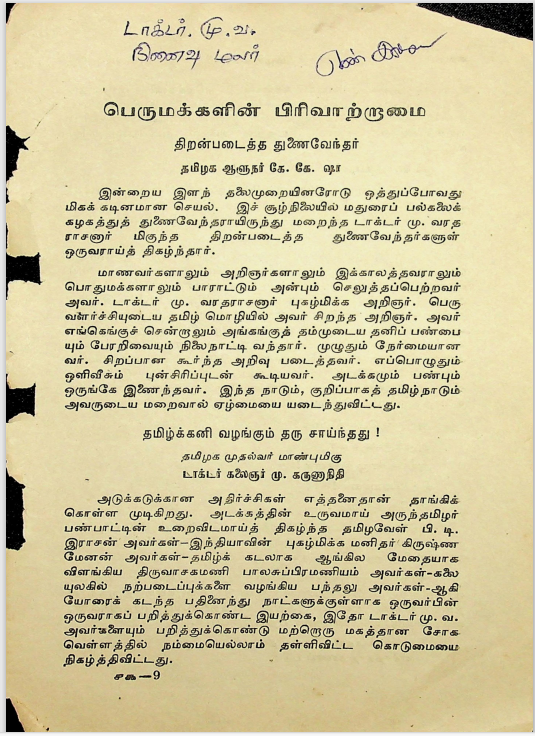 டாக்டர். மு. வ.
நினைவு மலர்
பெருமக்களின் பிரிவாற்றாமை
திறன்படைத்த துணைவேந்தர்
தமிழக ஆளுநர் கே. கே. ஷா
இன்றைய இளந் தலைமுறையினரோடு ஒத்துப்போவது
மிகக் கடினமான செயல். இச் சூழ்நிலையில் மதுரைப் பல்கலைக்
கழகத்துத் துணைவேந்தராயிருந்து மறைந்த டாக்டர் மு. வரத
ராசனார் மிகுந்த திறன்படைத்த துணைவேந்தர்களுள்
ஒருவராய்த் திகழ்ந்தார்.
மாணவர்களாலும் அறிஞர்களாலும் இக்காலத்தவராலும்
பொதுமக்களாலும் பாராட்டும் அன்பும் செலுத்தப்பெற்றவர்
அவர். டாக்டர் மு. வரதராசனார் புகழ்மிக்க அறிஞர். பெரு
வளர்ச்சியுடைய தமிழ் மொழியில் அவர் சிறந்த அறிஞர். அவர்
எங்கெங்குச் சென்றாலும் அங்கங்குத் தம்முடைய தனிப் பண்பை
யும் பேரறிவையும் நிலைநாட்டி வந்தார். முழுதும் நேர்மையான
வர். சிறப்பான கூர்ந்த அறிவு படைத்தவர். எப்பொழுதும்
ஒளிவீசும் புன்சிரிப்புடன் கூடியவர். அடக்கமும் பண்பும்
ஒருங்கே இணைந்தவர். இந்த நாடும், குறிப்பாகத் தமிழ்நாடும்
அவருடைய மறைவால் ஏழ்மையை யடைந்துவிட்டது.
தமிழ்க்கனி வழங்கும் தரு சாய்ந்தது !
தமிழக முதல்வர் மாண்புமிகு
டாக்டர் கலைஞர் மு. கருணாநிதி
அடுக்கடுக்கான அதிர்ச்சிகள் எத்தனைதான் தாங்கிக்
கொள்ள முடிகிறது. அடக்கத்தின் உருவமாய் அருந்தமிழர்
பண்பாட்டின் உறைவிடமாய்த் திகழ்ந்த தமிழவேள் பி. டி.
இராசன் அவர்கள்—இந்தியாவின் புகழ்மிக்க மனிதர் கிருஷ்ண
மேனன் அவர்கள்-தமிழ்க் கடலாக ஆங்கில மேதையாக
விளங்கிய திருவாசகமணி பாலசுப்பிரமணியம் அவர்கள்-கலை
யுலகில் நற்படைப்புக்களை வழங்கிய பந்துலு அவர்கள்-ஆகி
யோரைக் கடந்த பதினைந்து நாட்களுக்குள்ளாக ஒருவர்பின்
ஒருவராகப் பறித்துக்கொண்ட இயற்கை, இதோ டாக்டர் மு. வ.
அவர்களையும் பறித்துக்கொண்டு மற்றொரு மகத்தான சோக
வெள்ளத்தில் நம்மையெல்லாம் தள்ளிவிட்ட கொடுமையை
நிகழ்த்திவிட்டது.
—9